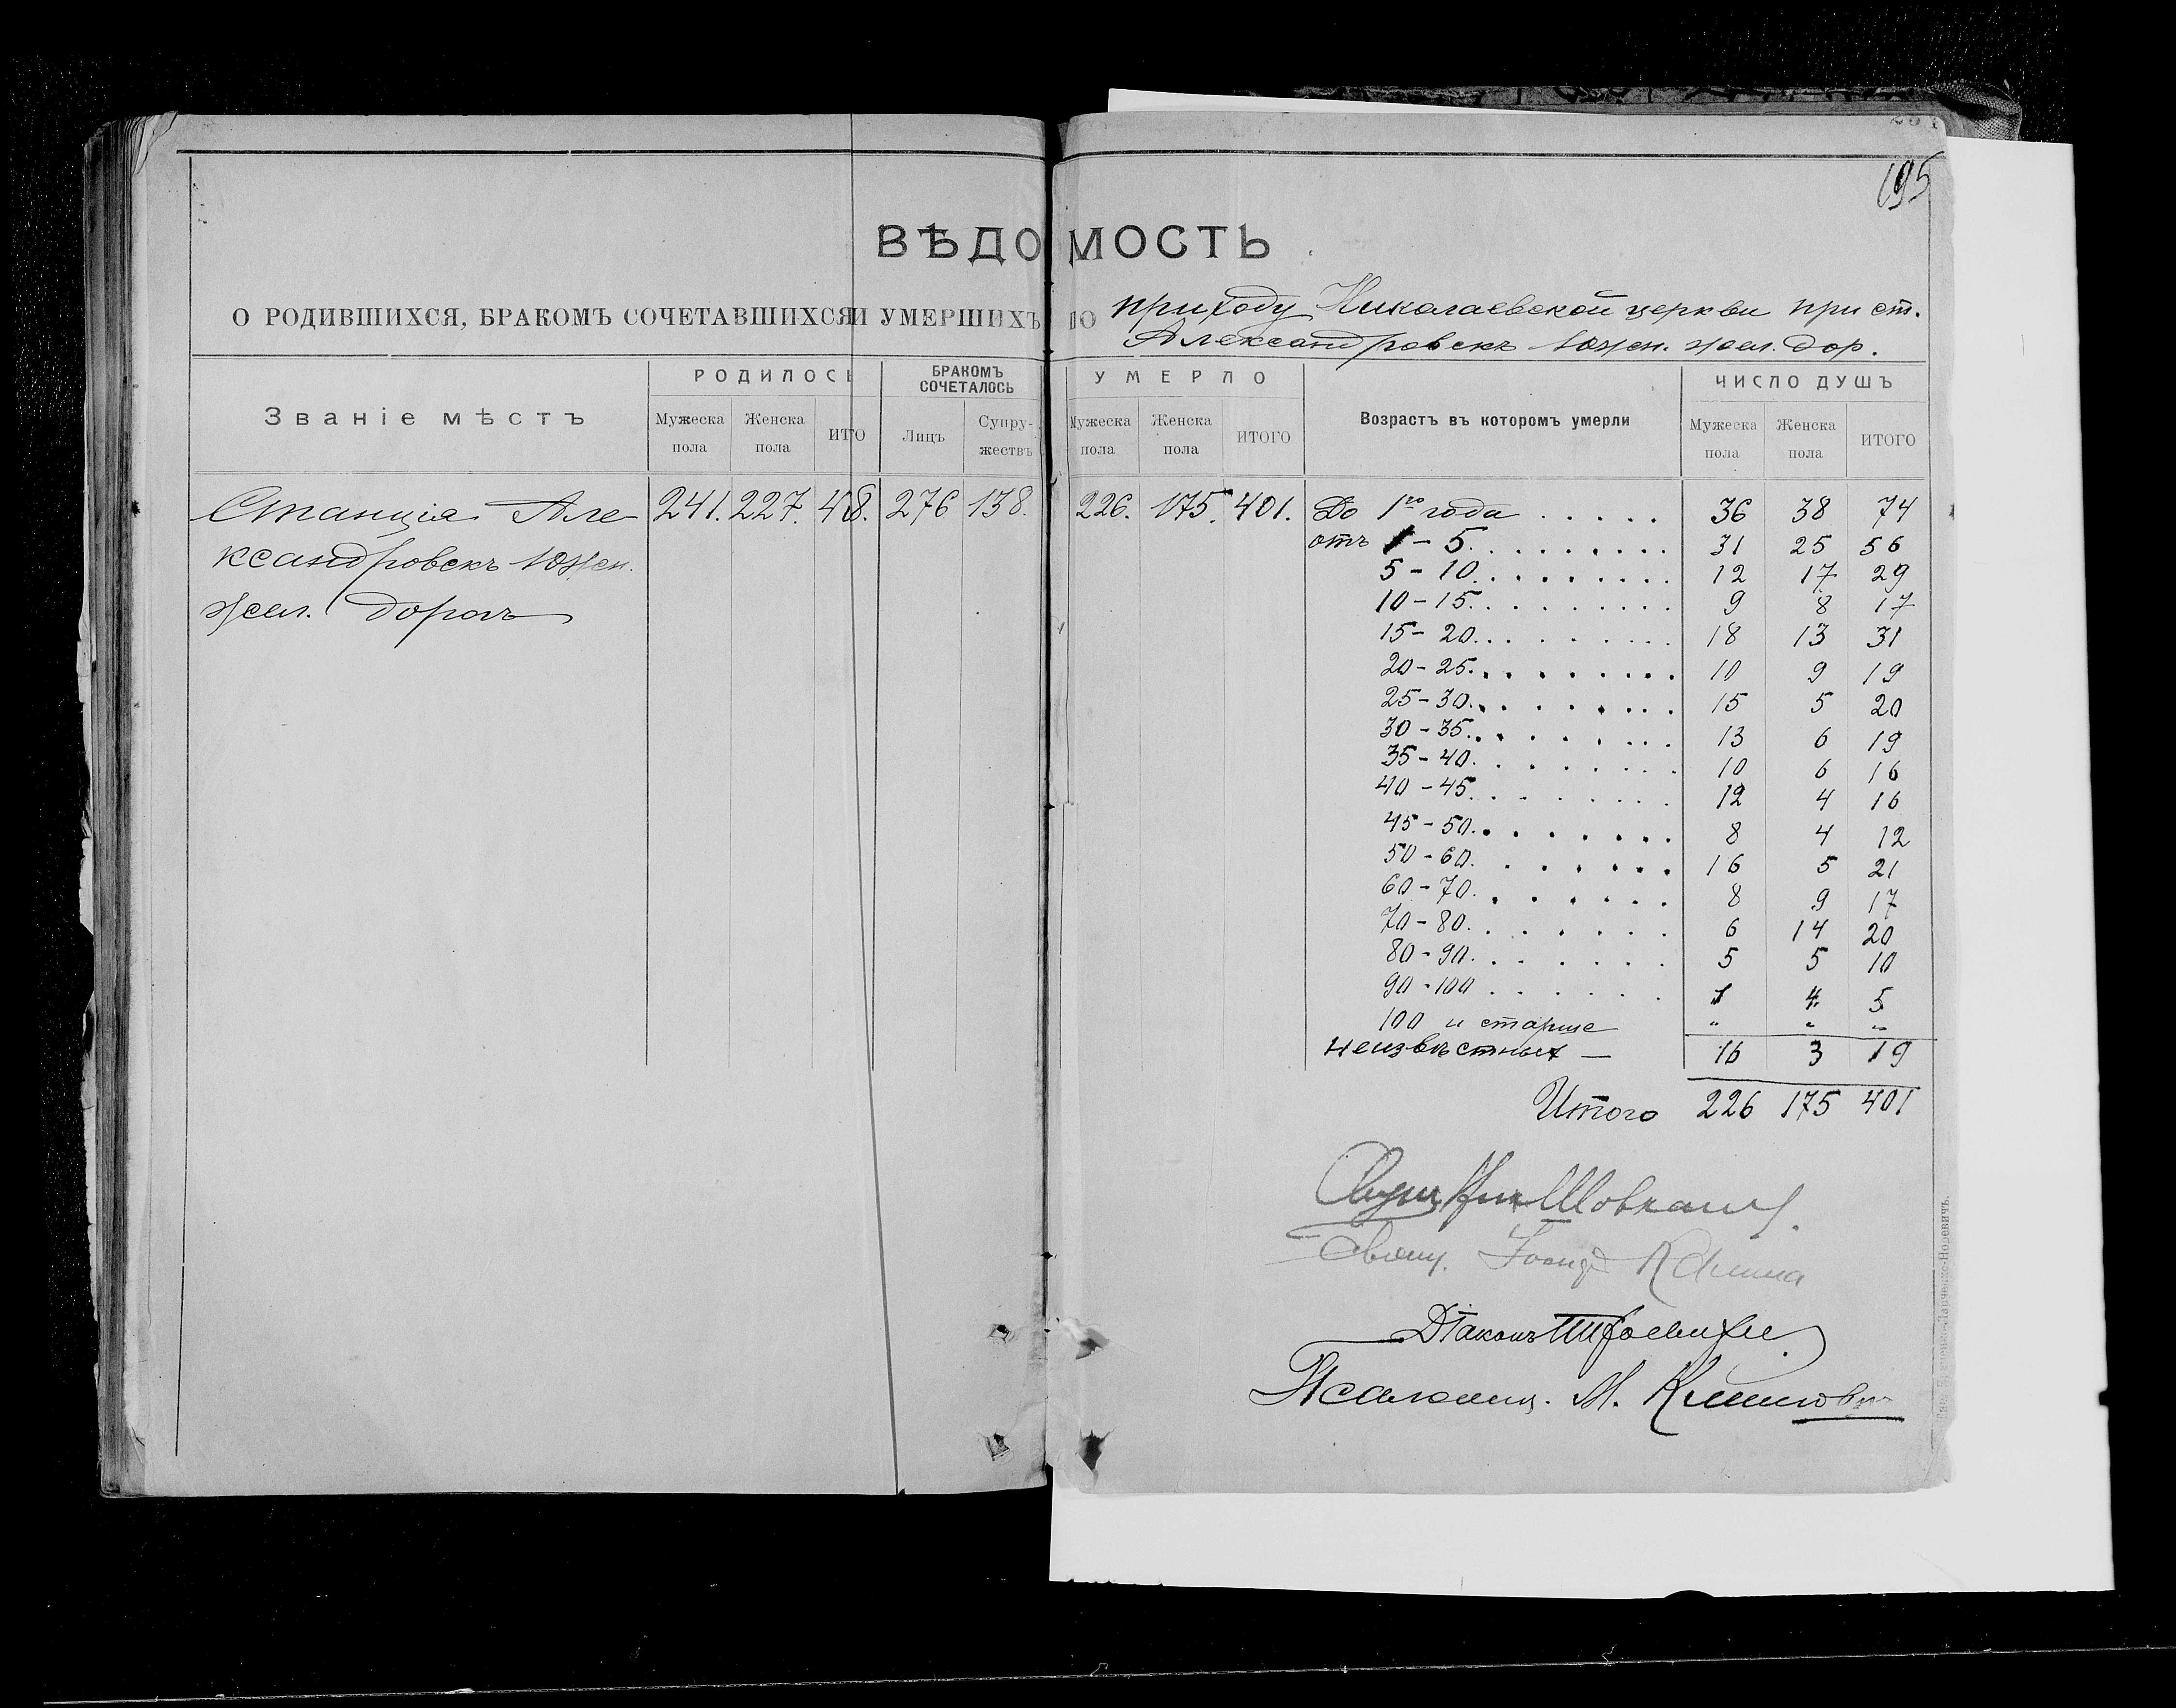 195
ВѢДОМОСТЬ
О РОДИВШИХСЯ, БРАКОМЪ СОЧЕТАВШИХСЯ И УМЕРШИХЪ ПО приходу Николаевской церкви при ст.
Александровскъ Южн. жел. дор.
Званіе мѣстъ
РОДИЛОСЬ
БРАКОМЪ СОЧЕТАЛОСЬ
УМЕРЛО
Возрастъ въ которомъ умерли
ЧИСЛО ДУШЪ
Мужеска пола Женска пола ИТО Лицъ Супружествъ Мужеска пола Женска пола ИТОГО Мужеска пола Женска пола ИТОГО
Станція Але- 241. 227. 276 138. 226. 175. 401. До 1го года . . . . . 36 38 74
ксандровскъ Южн.
жел. дорогъ
отъ 1 - 5 . . . . . . . . . 31 25 56
5 - 10 . . . . . . . . 12 17 29
10 - 15 . . . . . . . . 9 8 17
15 - 20 . . . . . . . . 18 13 31
20 - 25 . . . . . . . . 10 9 19
25 - 30 . . . . . . . . 15 5 20
30 - 35 . . . . . . . . 13 6 19
35 - 40 . . . . . . . . 10 6 16
40 - 45 . . . . . . . . 12 4 16
45 - 50 . . . . . . . . 8 4 12
50 - 60 . . . . . . . 16 5 21
60 - 70 . . . . . . . 8 9 17
70 - 80 . . . . . . . 6 14 20
80 - 90 . . . . . . . 5 5 10
90 - 100 . . . . . . . 1 4 5
100 и старше " " "
Неизвѣстныхъ — 16 3 19
Итого 226 175 401
Свящ. Іоаннъ
Діаконъ
Псаломщ. М.